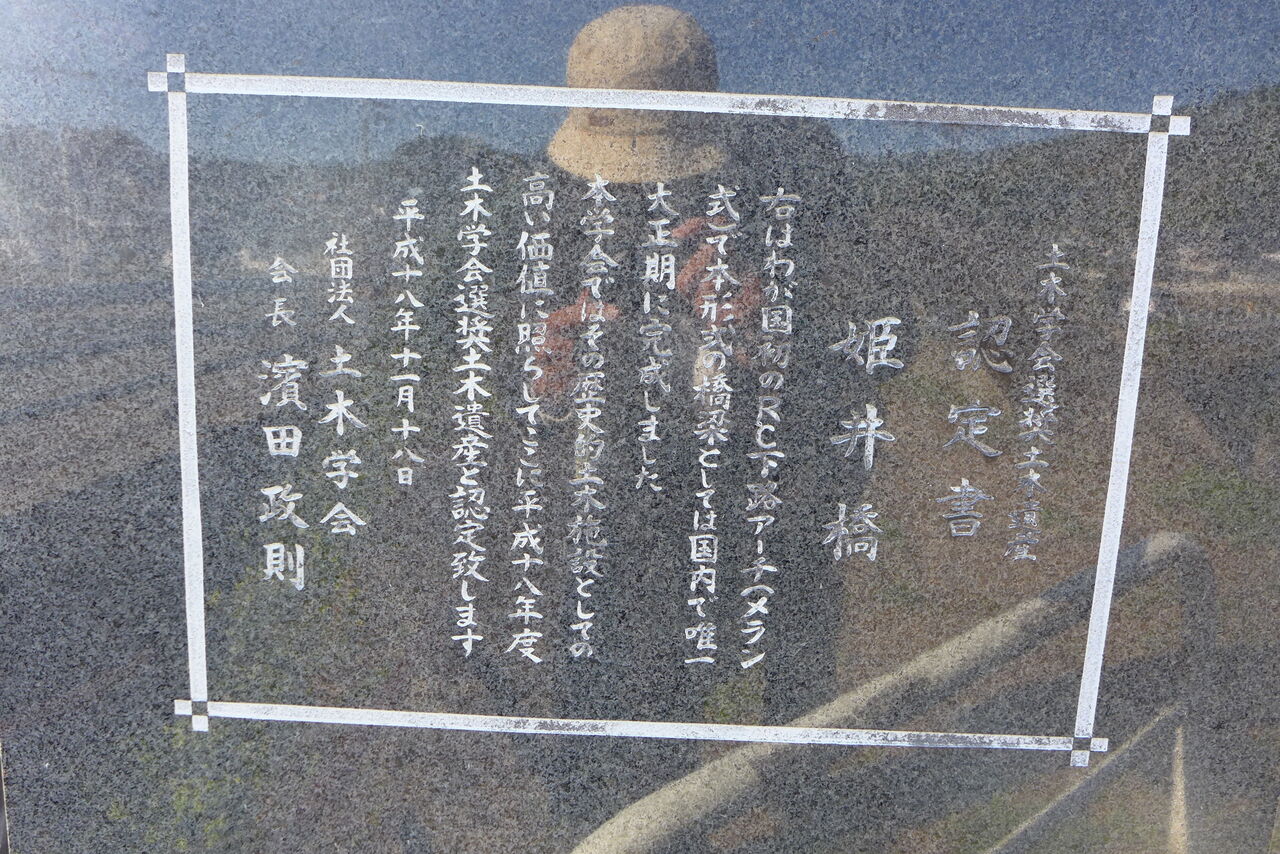 土木学会選奨土木遺産
認定書
姫井橋
右はわが国初のRC下路アーチ(メラン
式)で本形式の橋梁としては国内で唯一
大正期に完成しました
本学会ではその歴史的土木施設としての
高い価値に照らしてここに平成十八年度
土木学会選奨土木遺産と認定致します
平成十八年十一月十八日
社団法人 土木学会
会長 濱田政則